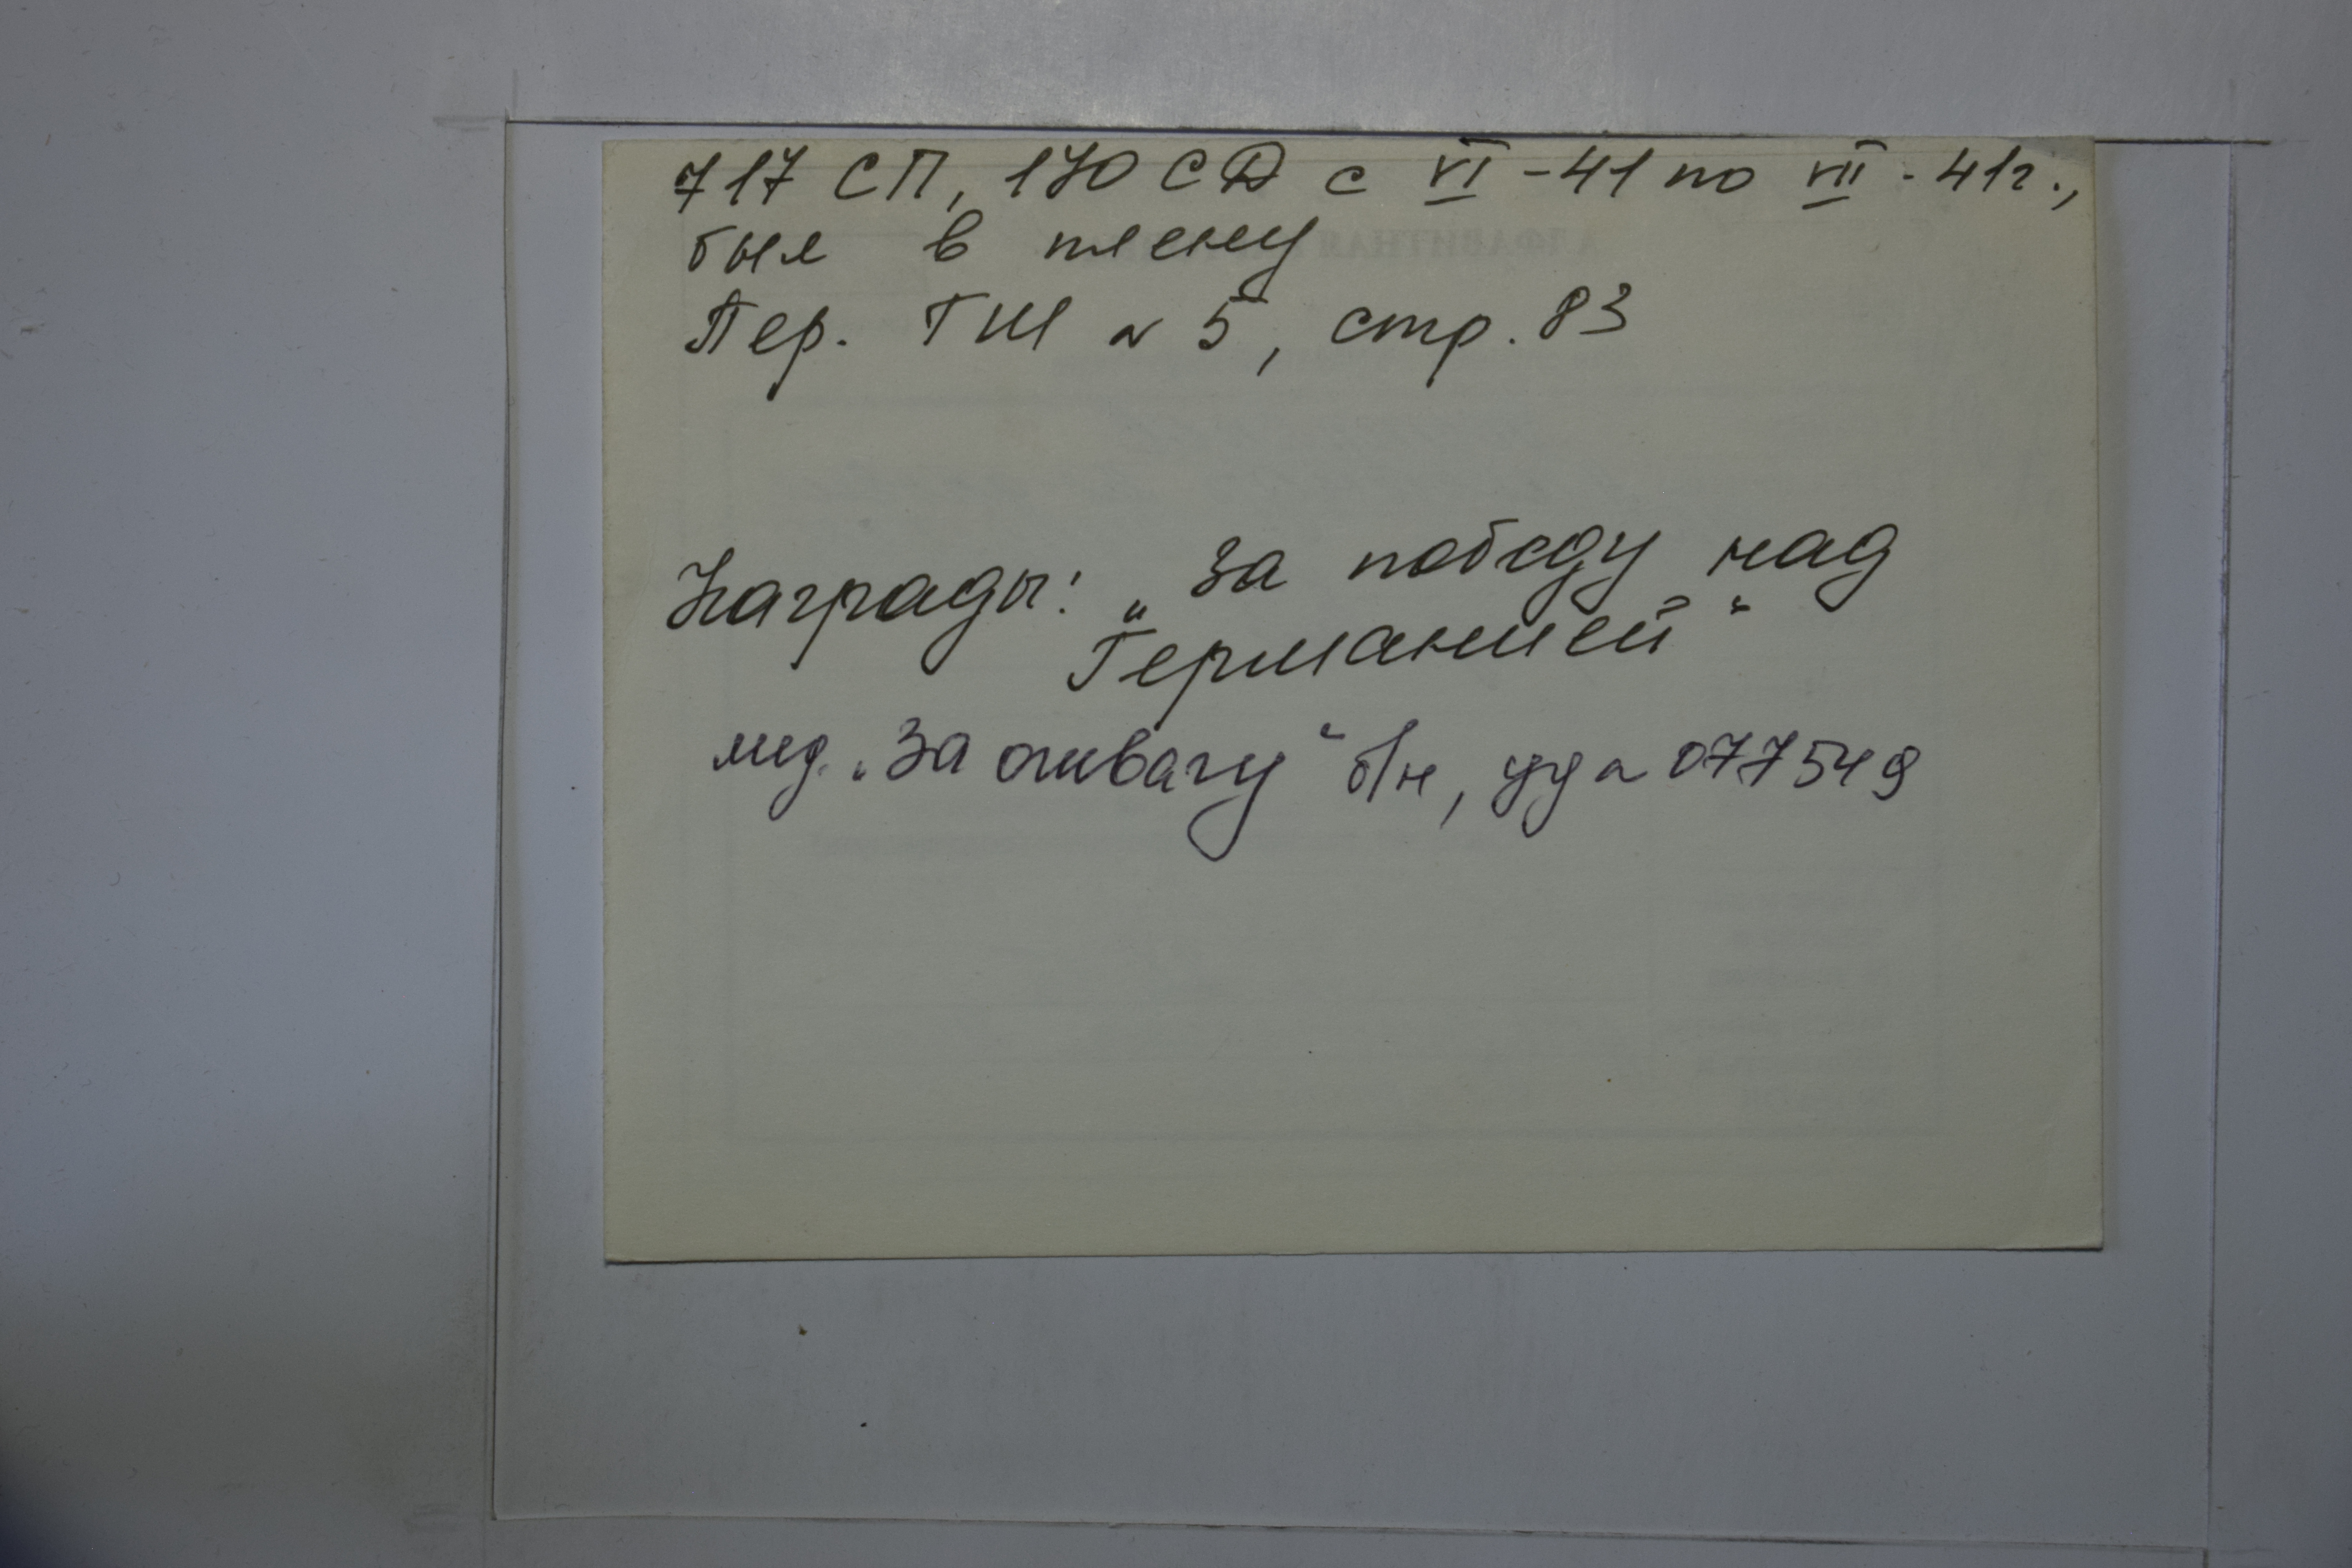 717 СП, 170 СД с VI - 41 по VII - 41г.,
был в плену
Пер. ГШ № 5, стр. 83
Награды: „За победу над
Германией“
мед. „За отвагу“ б/н, уд № 077549